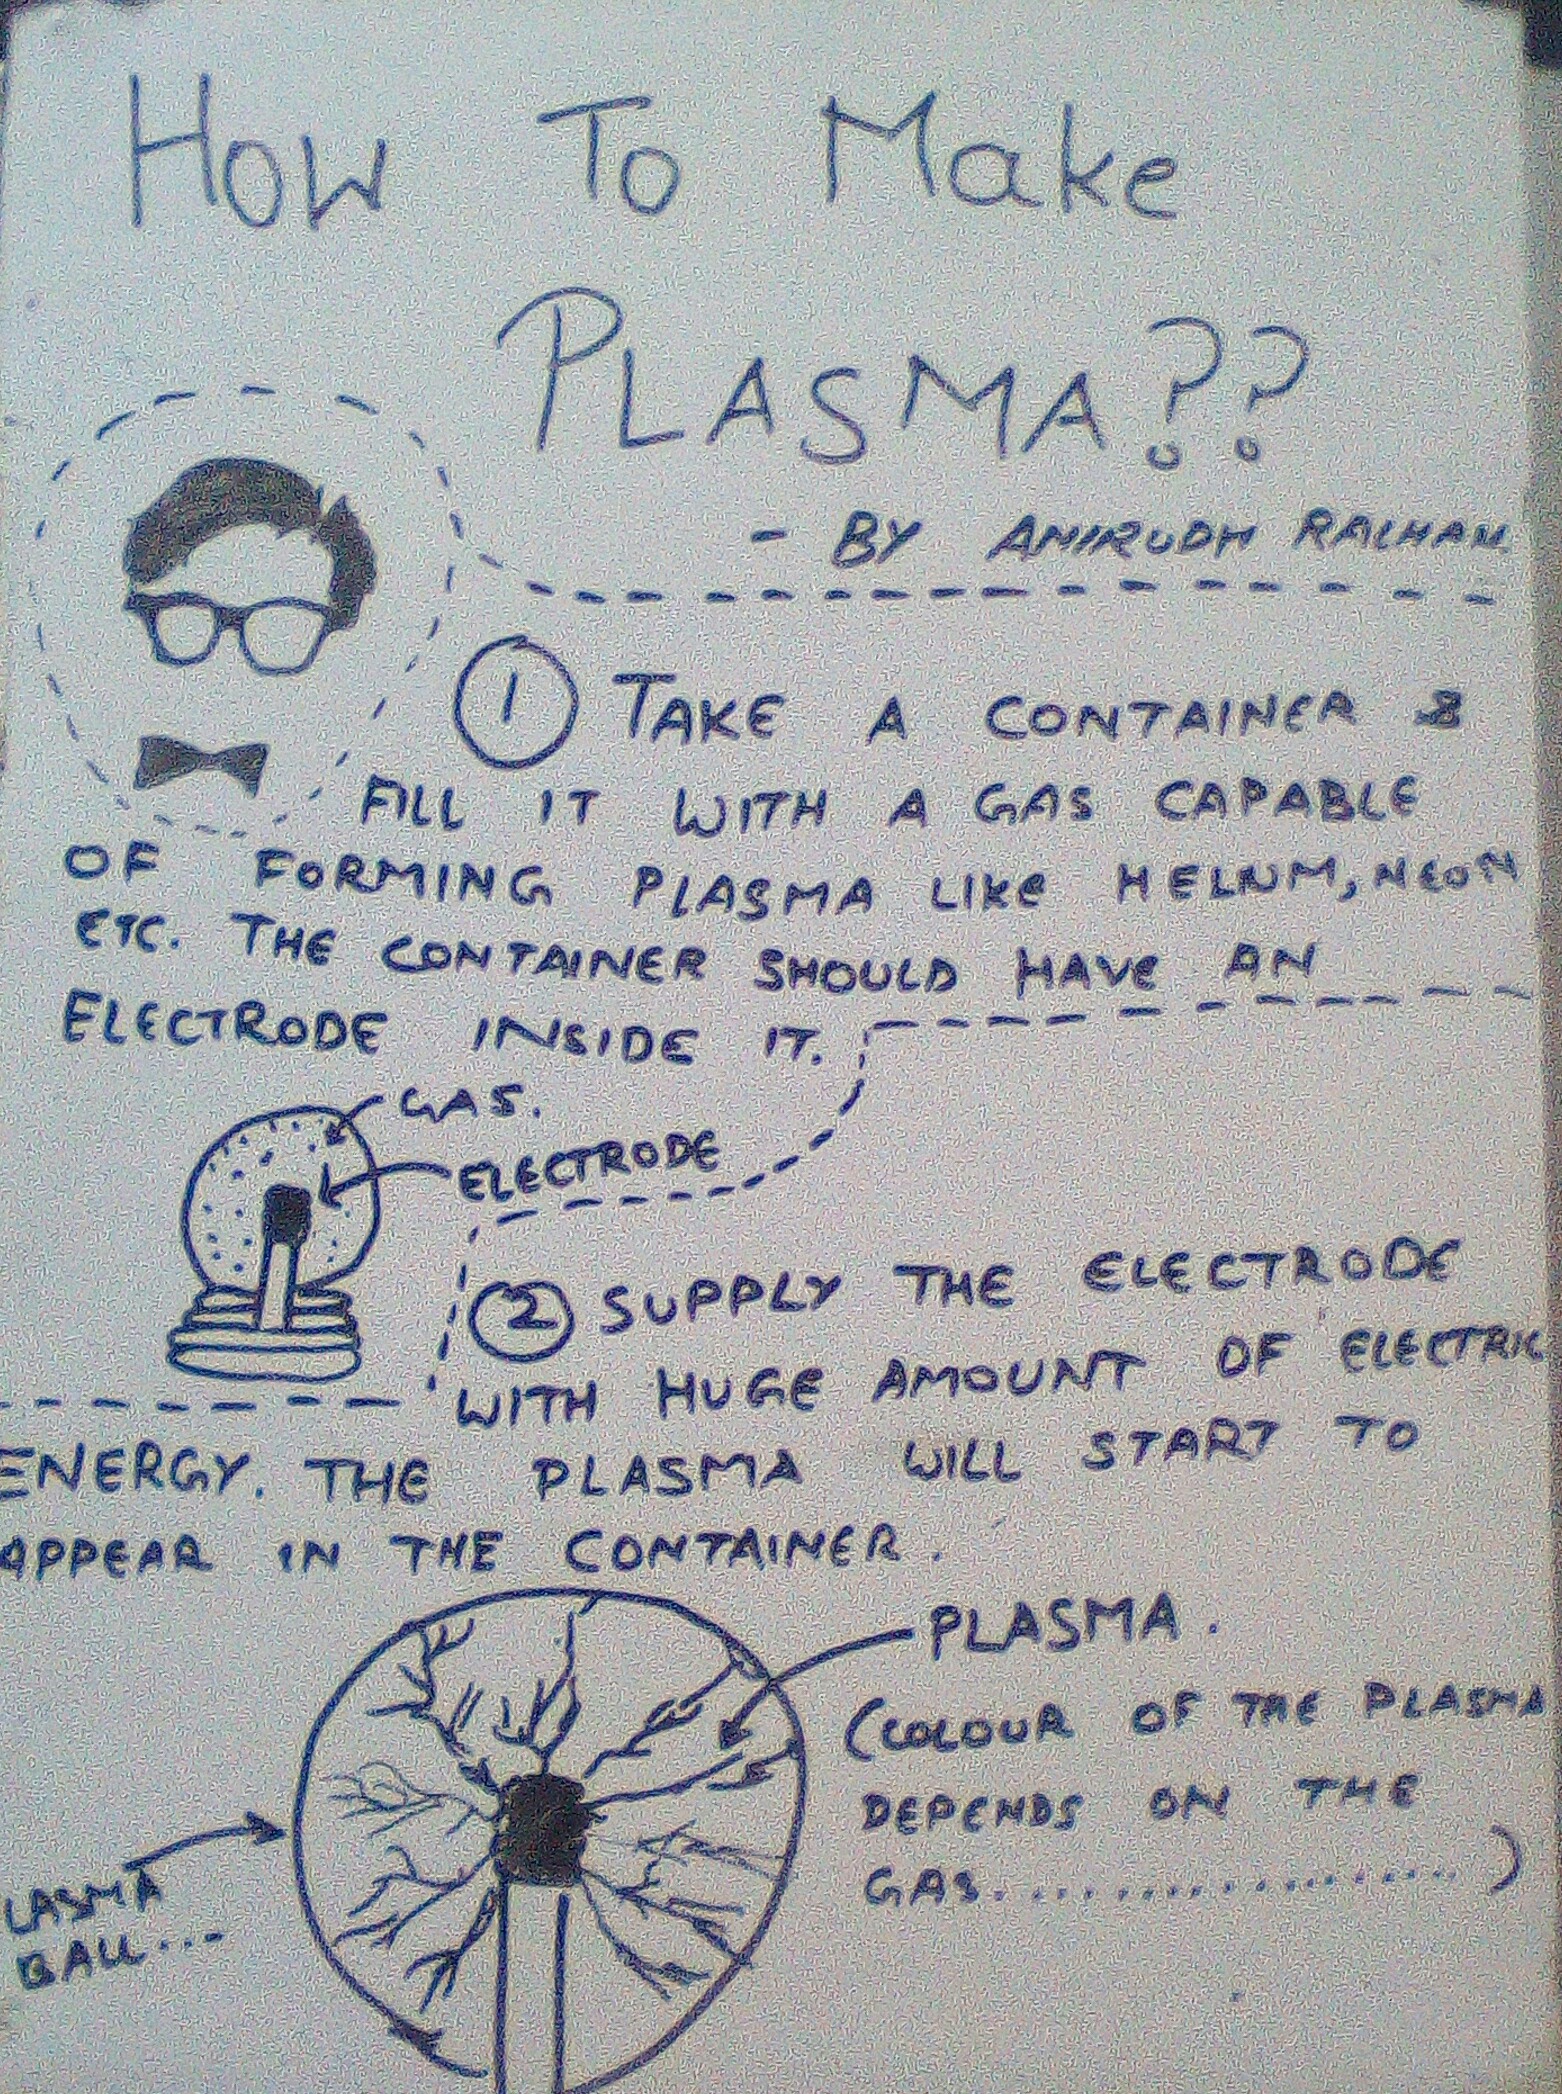 How To Make
PLASMA??
- BY ANIRUDH RALHAN
1 TAKE A CONTAINER &
FILL IT WITH A GAS CAPABLE
OF FORMING PLASMA LIKE HELIUM, NEON
ETC. THE CONTAINER SHOULD HAVE AN
ELECTRODE INSIDE IT.
GAS.
ELECTRODE
2 SUPPLY THE ELECTRODE
WITH HUGE AMOUNT OF ELECTRIC
ENERGY. THE PLASMA WILL START TO
APPEAR IN THE CONTAINER.
PLASMA.
(COLOUR OF THE PLASMA
DEPENDS ON THE
GAS..................)
LASMA
BALL...